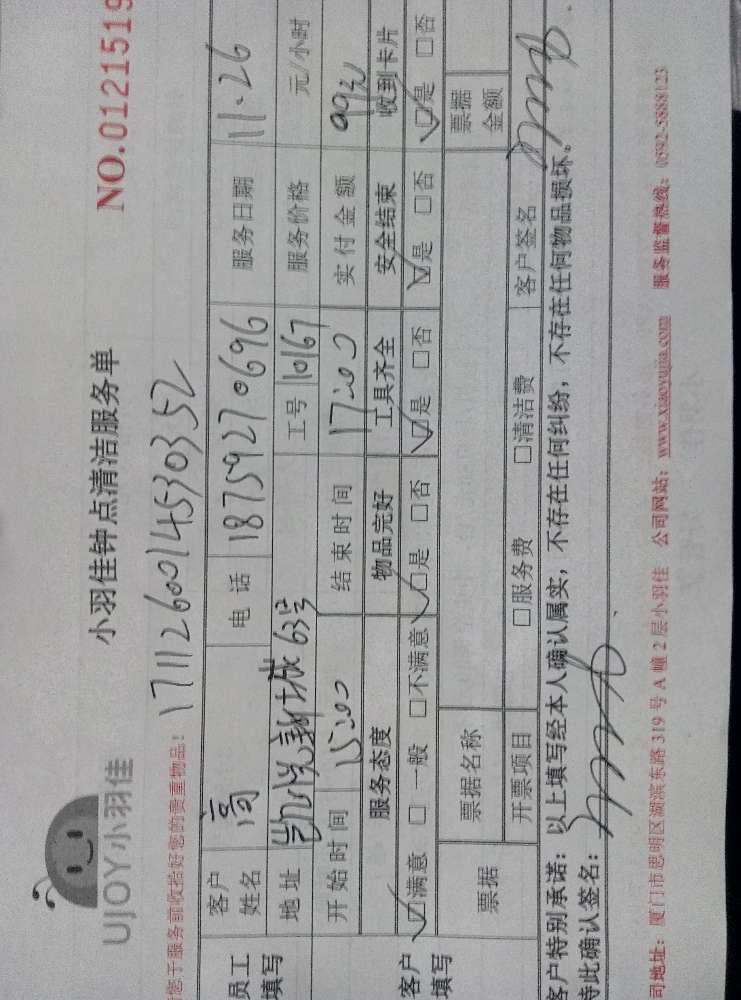 UJOY小羽佳
小羽佳钟点清洁服务单
NO.0121519
您于服务前收拾好您的贵重物品!
171126001453035２
员工填写
客户姓名 高 电话 18759270696 服务日期 11.26
地址 凯悦新城63号 工号 10167 服务价格 元/小时
开始时间 15:00 结束时间 17:00 实付金额 99元
客户填写
服务态度 物品完好 工具齐全 安全结束 收到卡片
☑满意 □一般 □不满意 ☑是 □否 ☑是 □否 ☑是 □否 ☑是 □否
票据 票据名称 票据金额
开票项目 □服务费 □清洁费 客户签名
客户特别承诺:以上填写经本人确认属实,不存在任何纠纷,不存在任何物品损坏。
特此确认签名:
司地址:厦门市思明区湖滨东路319号A幢2层小羽佳 公司网站:www.xiaoyujia.com 服务监督热线:0592-5888123